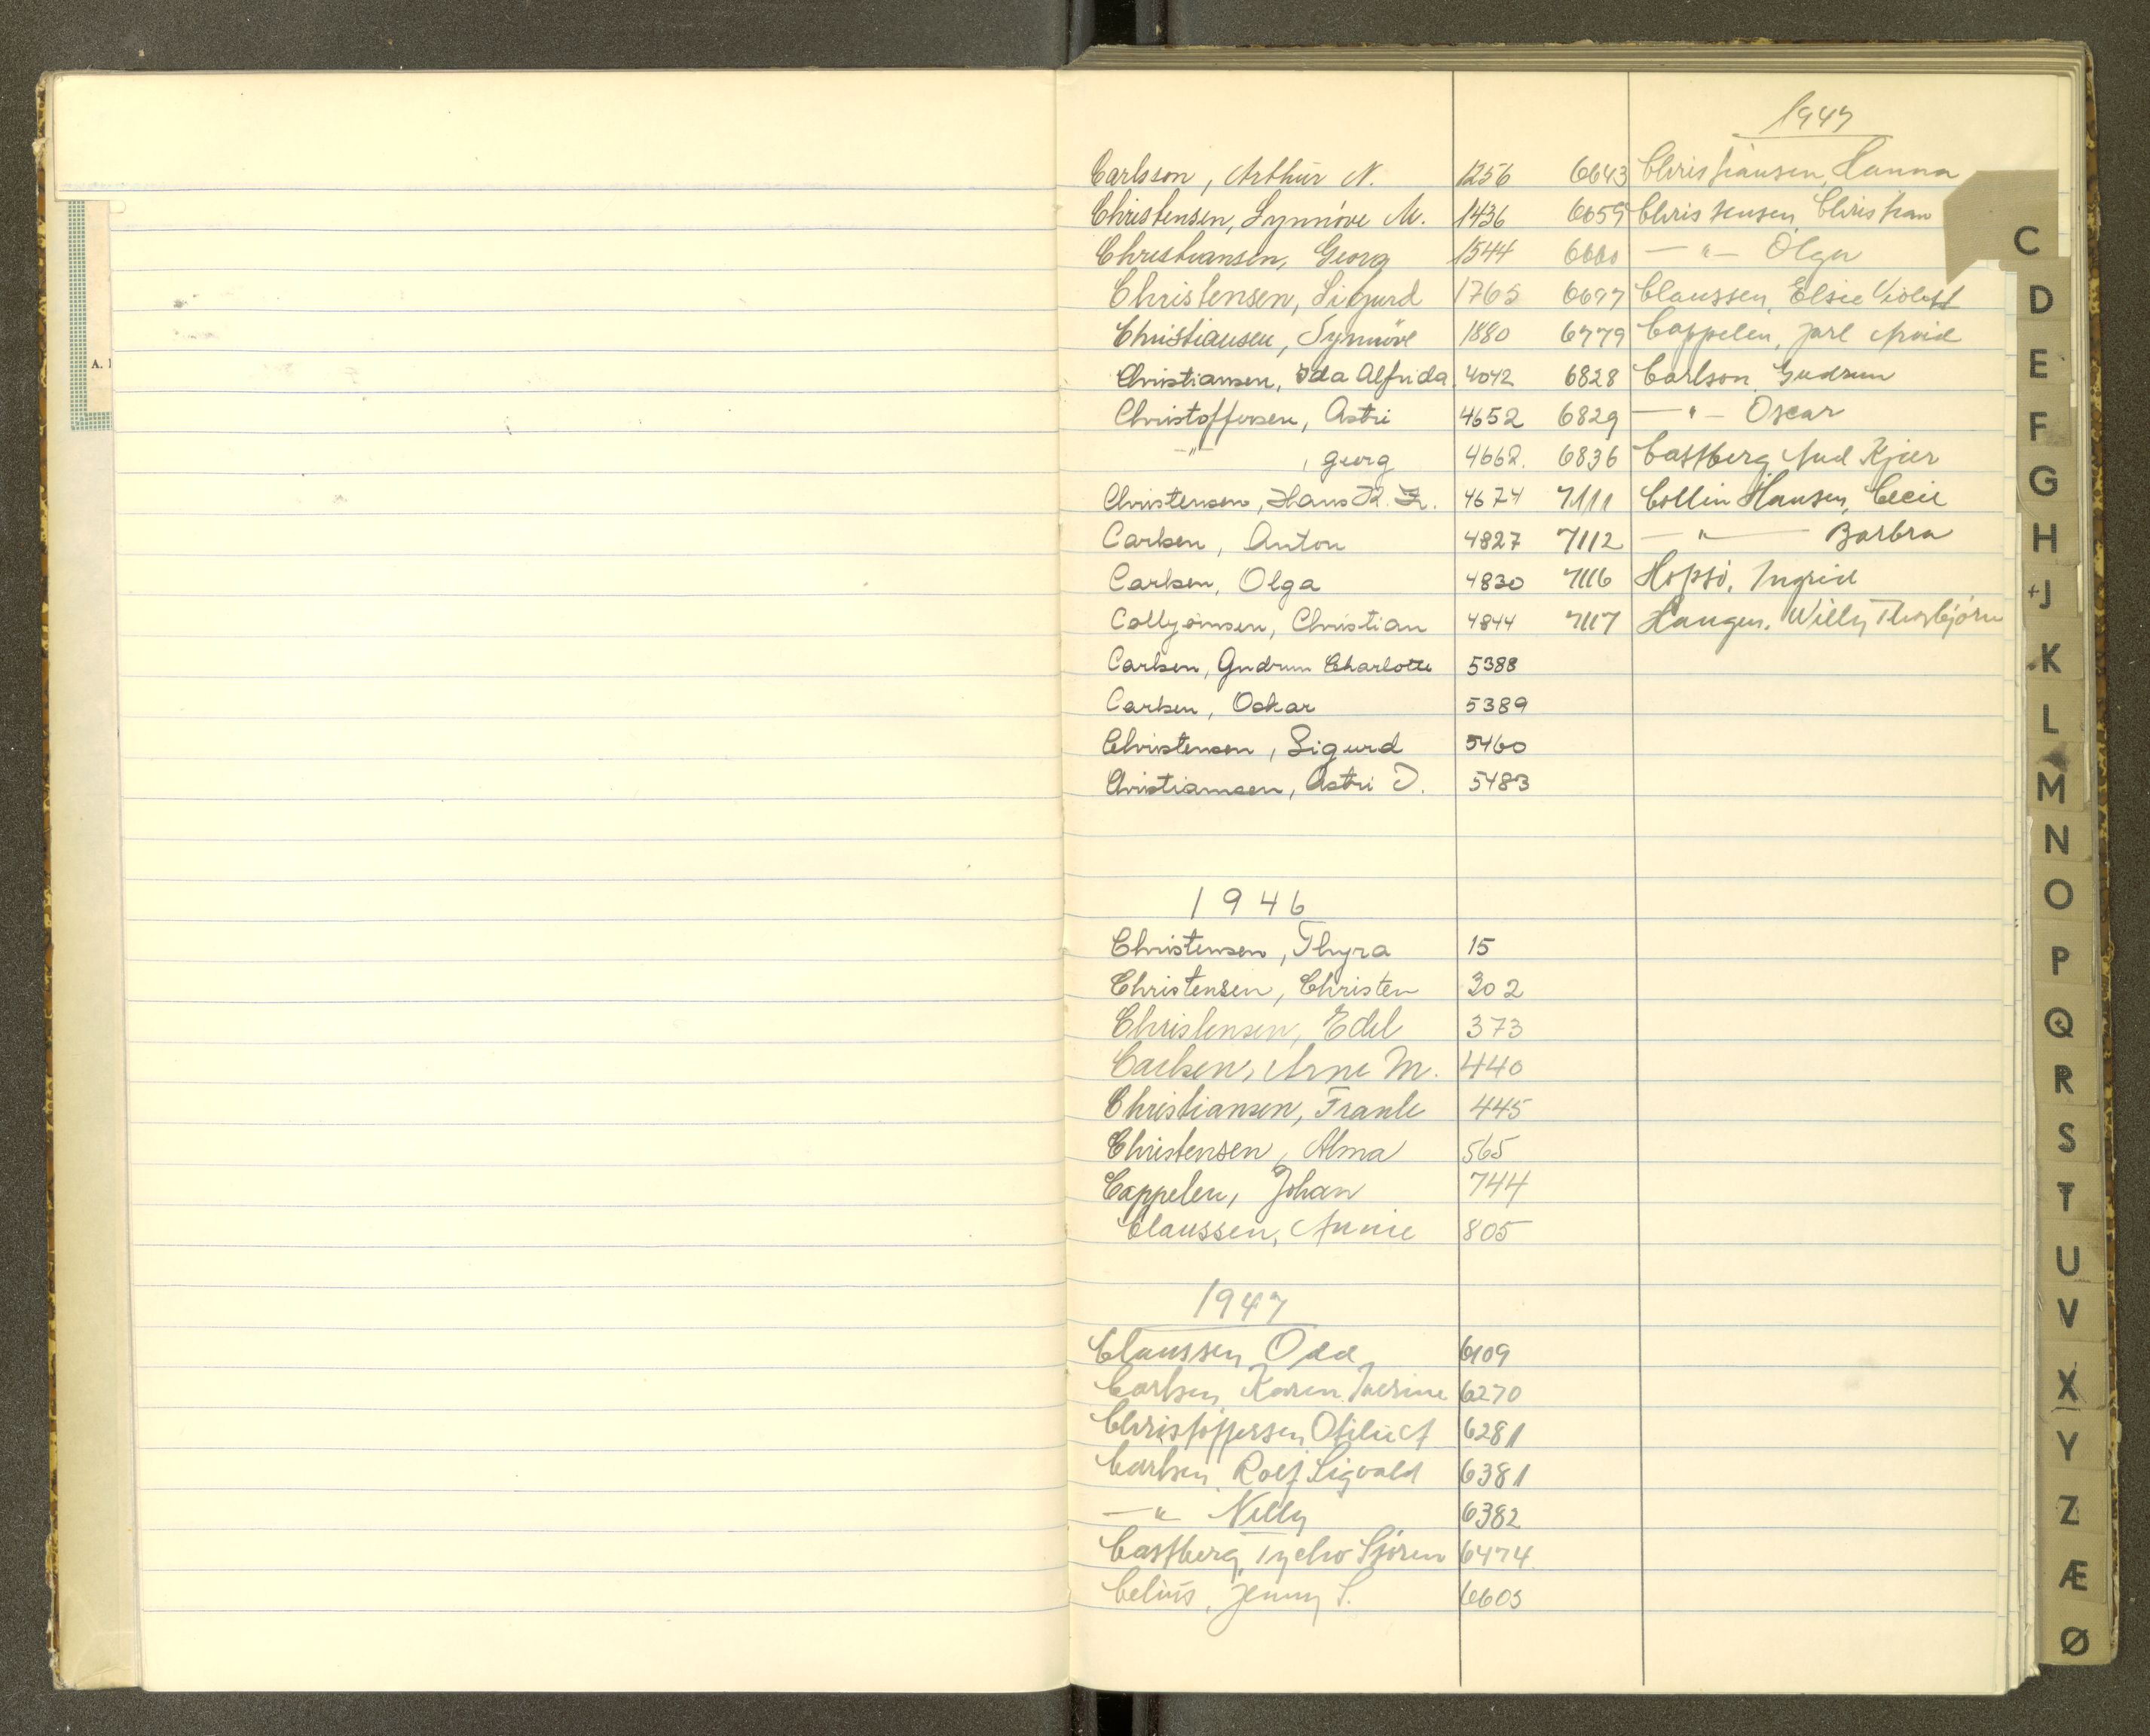 1947
Carlsson, Arthur N. 1256 6643 Christiansen, Hanna
Christensen, Synnöve M. 1436 6659 Christensen, Christian
Christiansen, Georg 1544 6660 —"— Olga
Christensen, Sigurd 1765 6697 Claussen, Elsie Violet
Christiansen, Synnöve 1880 6779 Cappelen, Jarl Arvid
Christiansen, Ida Alfrida 4042 6828 Carlson, Gudrun
Christoffersen, Astri 4652 6829 —"— Oscar
—"— , Georg 4662. 6836 Castberg Aud Kjær
Christensen, Hans R. Z. 4674 7111 Collin Hansen, Cecil
Carlsen, Anton 4827 7112 —"— Barbra
Carlsen, Olga 4830 7116 Hopsö, Ingrid
Collyörnsen, Christian 4844 7117 Haugen, Willy Thorbjörn
Carlsen, Gudrun Charlotte 5388
Carlsen, Oskar 5389
Christensen, Sigurd 5460
Christiansen, Astri I. 5483
1946
Christensen, Thyra 15
Christensen, Christen 302
Christensen, Edel 373
Carlsen, Arne M. 440
Christiansen, Frank 445
Christensen, Alma 565
Cappelen, Johan 744
Claussen, Annie 805
1947
Claussen Odd 6109
Carlsen, Karen 6270
Christoffersen 6281
Carlsen, Rolf Sigvald 6381
—"— Nelly 6382
Castberg, Tycho Sjören 6474
Celius, Jenny S. 6603
A.
C
D
E
F
G
H
+J
K
L
M
N
O
P
Q
R
S
T
U
V
X
Y
Z
Æ
Ø